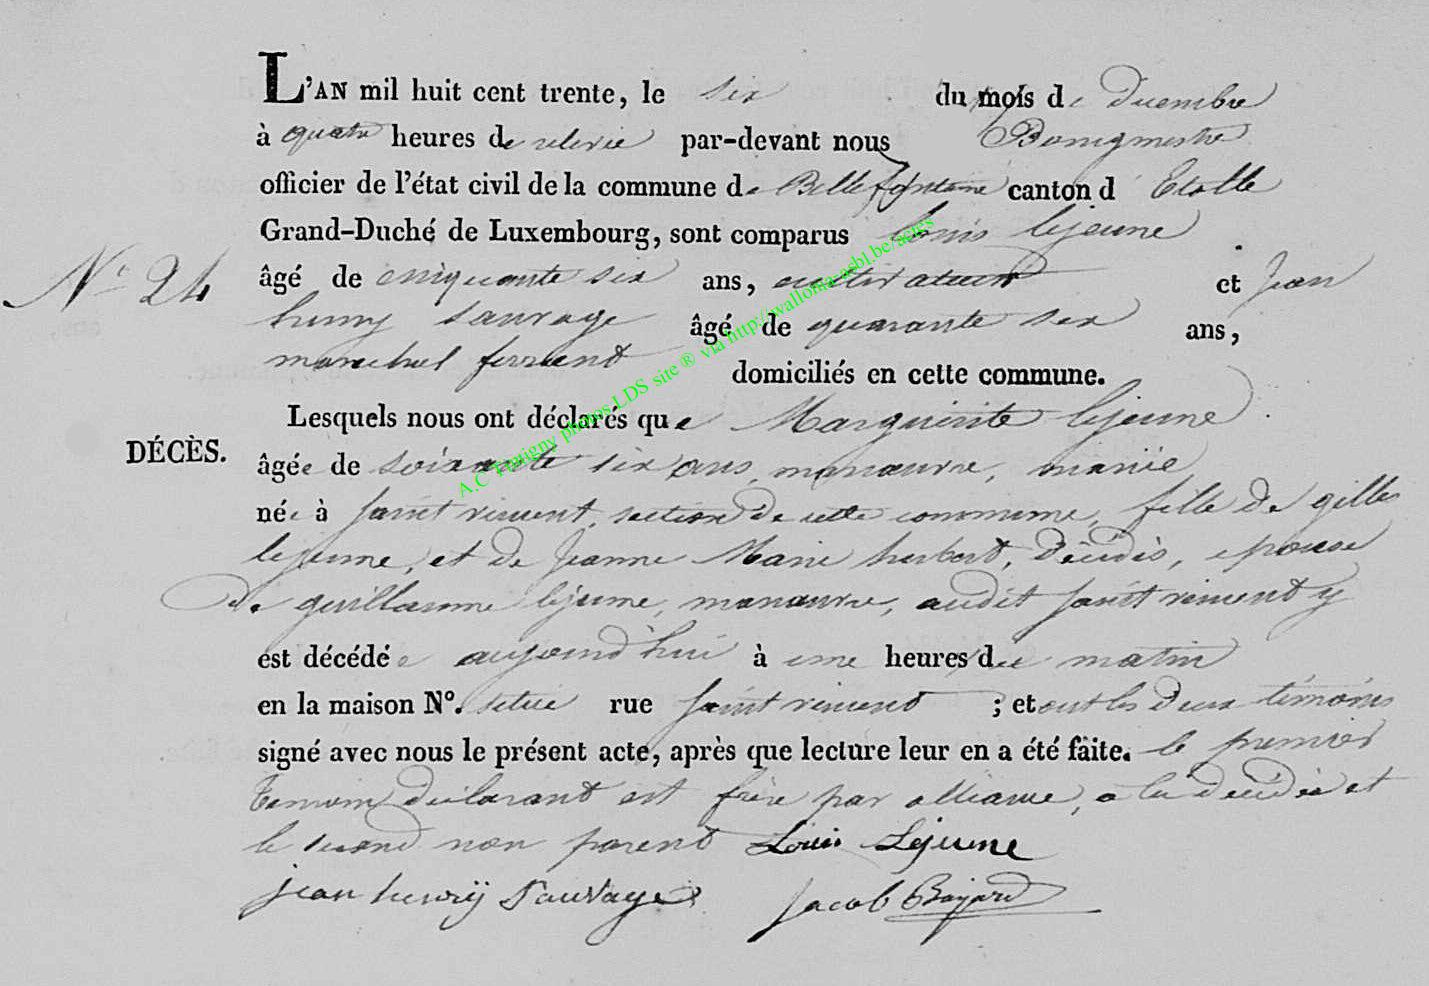 L'AN mil huit cent trente, le six du mois de decembre
à quatre heures de relevée par-devant nous Bourgmestre
officier de l'état civil de la commune de Bellefontaine canton d' Etalle
Grand-Duché de Luxembourg, sont comparus Louis lejeune
N° 24
âgé de cinquante six ans, cultivateur et Jean
henry sauvage âgé de quarante six ans,
marechal ferrant domiciliés en cette commune.
Lesquels nous ont déclarés que Marguerite lejeune
DÉCÈS.
âgée de soixante six ans, manœuvre, mariée
née à saint vincent, section de cette commune, fille de gilles
lejeune, et de Jeanne Marie herbert, décédés, epouse
de guillaume lejeune, manœuvre, audit saint vincent y
est décédée aujourd'hui à une heures du matin
en la maison N°. située rue saint vincent ; et ont les deux témoins
signé avec nous le présent acte, après que lecture leur en a été faite. le premier
temoin declarant est frère par alliance, a la décédée et
le second non parent Louis Lejeune
jean henrÿ Sauvage Jacob Bayard
A.C Tintigny photos LDS site ® via http://wallonia-asbl.be/actes